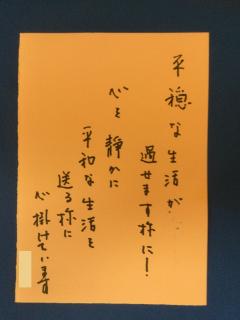 平穏な生活が
過せます様に!
心を静かに
平和な生活を
送る様に
心掛けています